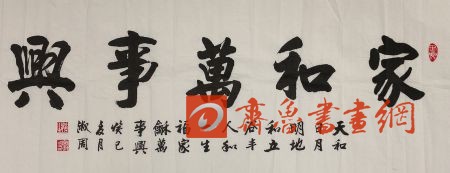 家和萬事興
天和
日月
明地
和五
谷丰
人和
人生
福家
龢萬
事興
癸巳
夏月
淑周
齊魯書畫網